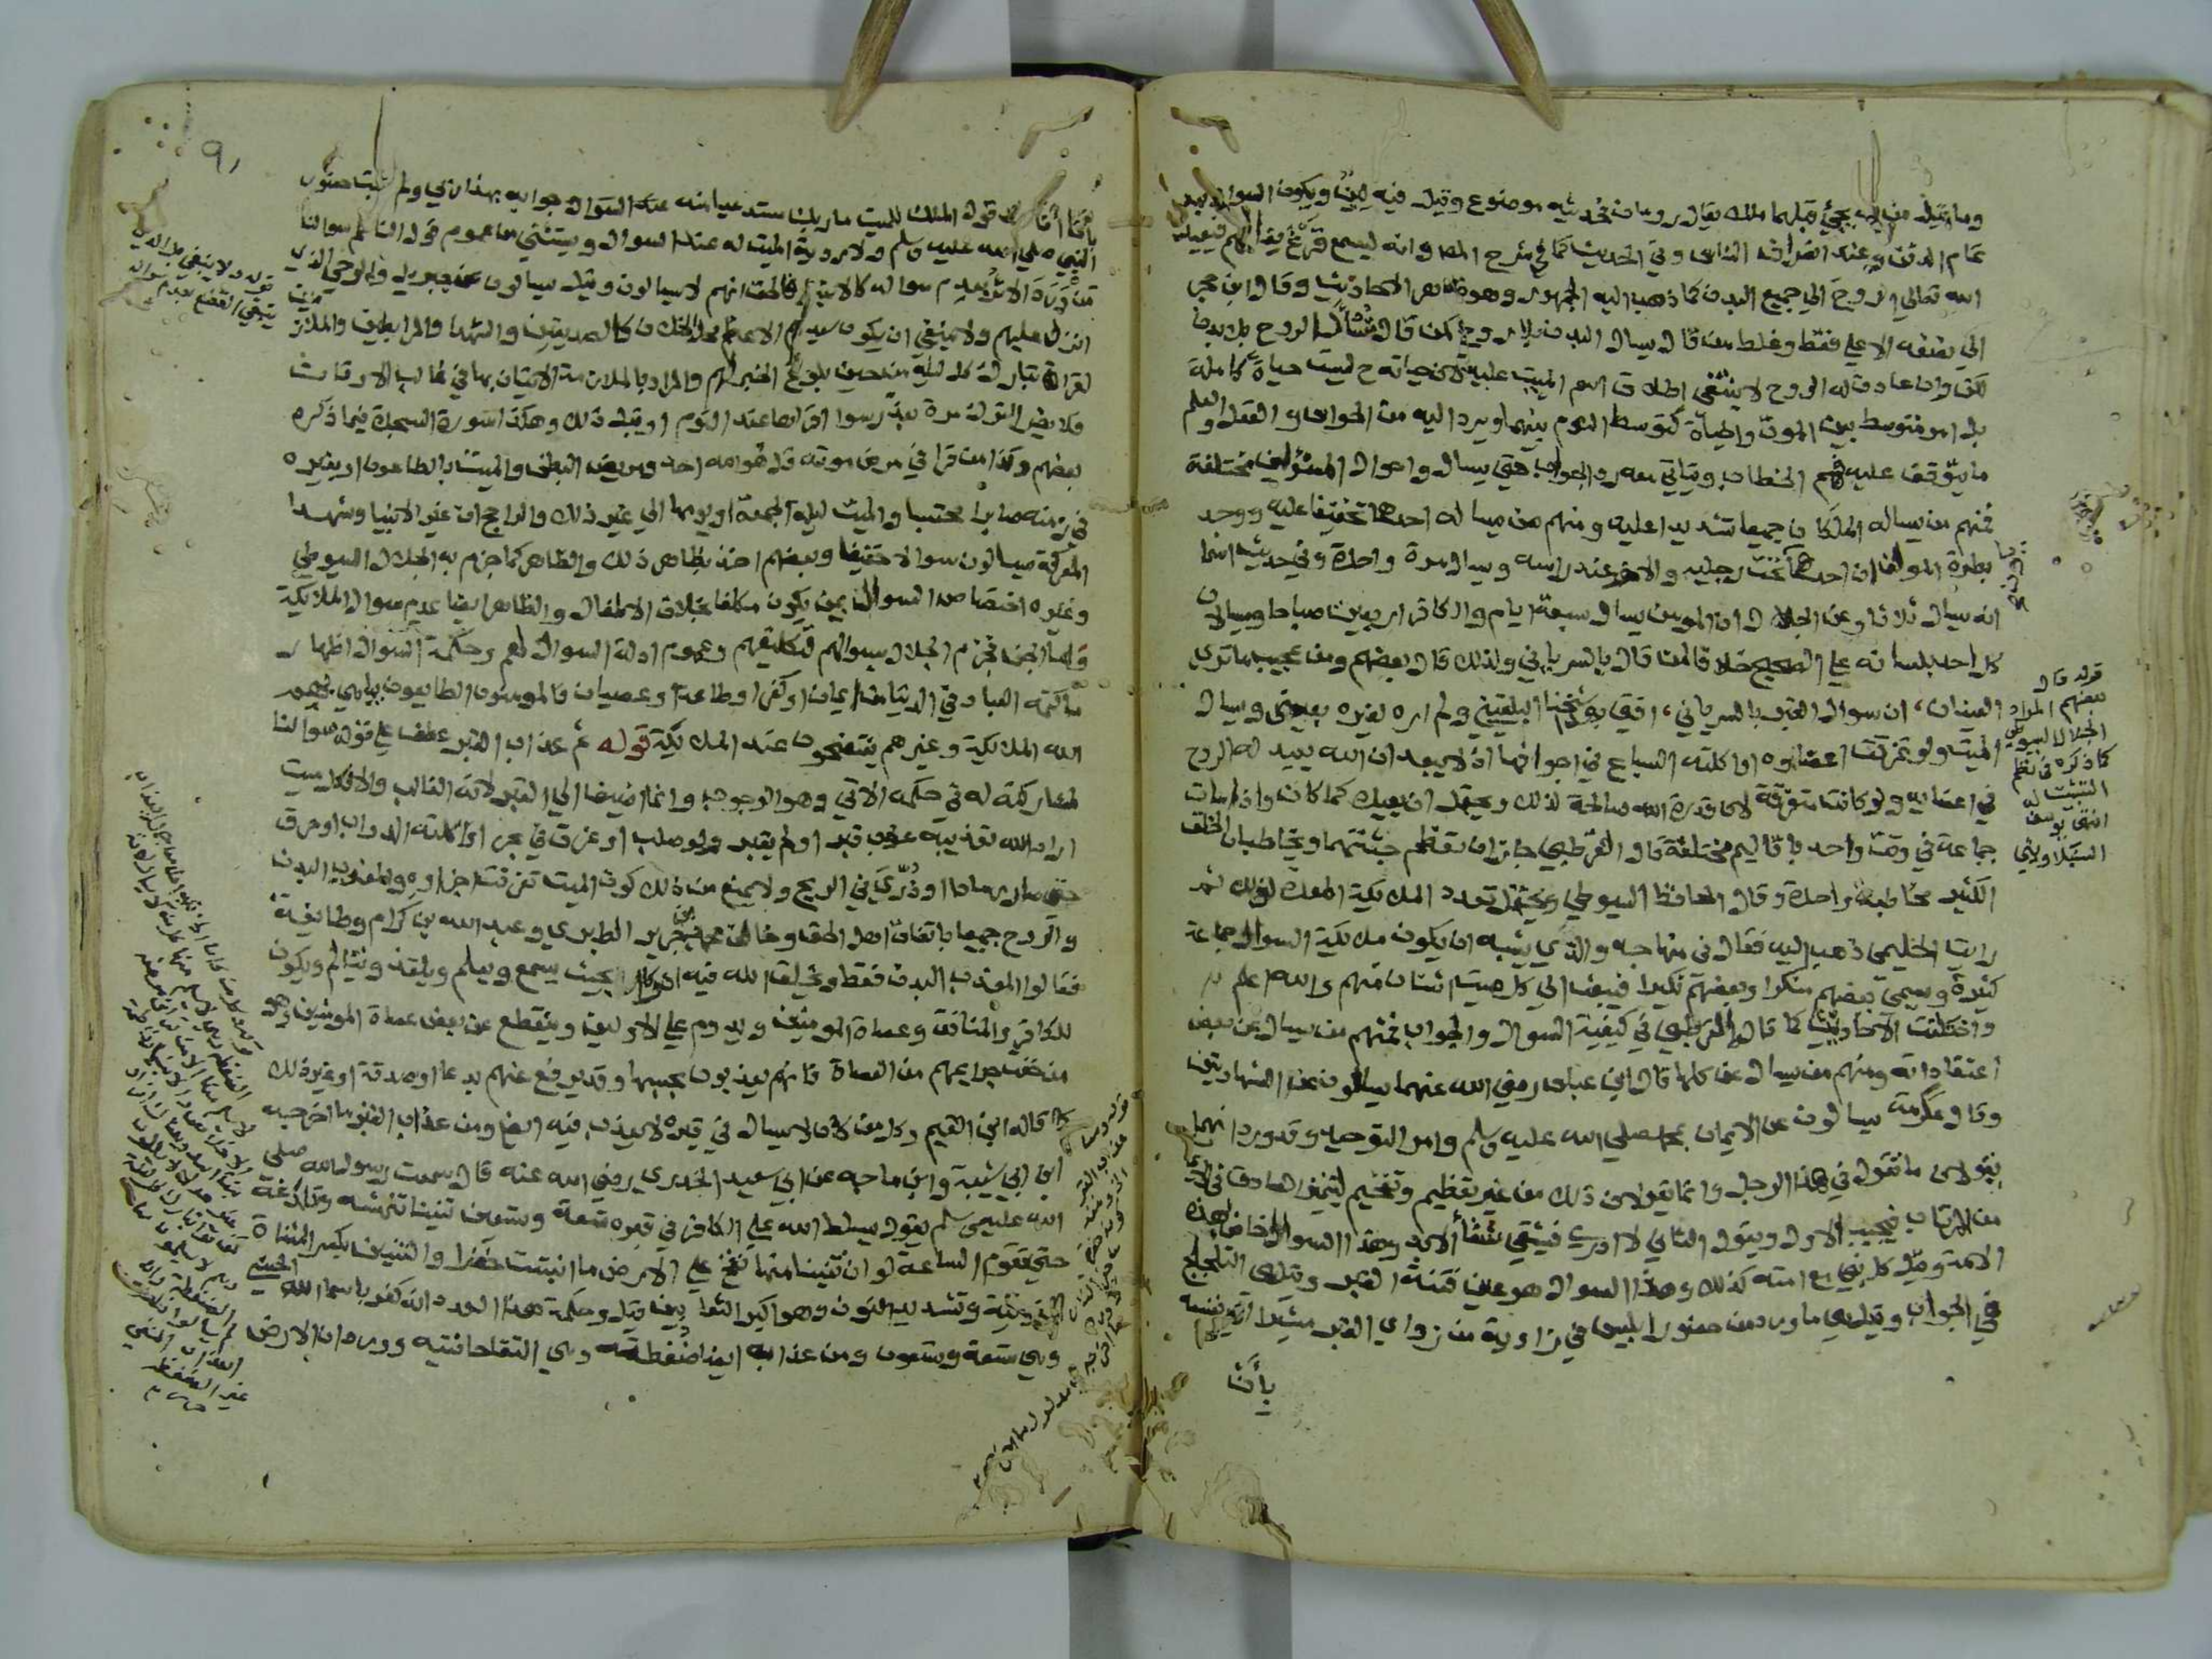 وما قيل من انه يجئ قبلهما ملك يقال رومان فحديثه موضوع وقيل فيه لين ويكون السوال بعد
تمام الدفن وعند انصراف الناس وفي الحديث كما في شرح المص وانه ليسمع قرع نعالهم فيعيد
الله تعالى الروح الى جميع البدن كما ذهب اليه الجمهور وهو ظاهر الاحاديث وقال ابن حجر
الى نصفه الاعلى فقط وغلط من قال يسال البدن بلا روح كمن قال تسأل الروح بلا بدن
لكن وان عادت له الروح لا ينتفى اطلاق اسم الميت عليه لان حياته ح ليست حياة كاملة
بل امر متوسط بين الموت والحياة كتوسط النوم بينهما ويرد اليه من الحواس والعقل والعلم
ما يتوقف عليه فهم الخطاب ويتاتى معه رد الجواب حتى يسال واحوال المسؤلين مختلفة
فمنهم من يساله الملكان جميعا تشديدا عليه ومنهم من يساله احدهما تخفيفا عليه ووجد
بطرة المؤلف ان احدهما تحت رجليه والاخر عند راسه ويسال مرة واحدة وفي حديث اسما
انه يسال ثلاثا وعن الجلال ان المومن يسال سبعة ايام والكافر اربعين صباحا ويسالان
كل احد بلسانه على الصحيح خلافا لمن قال بالسرياني ولذلك قال بعضهم ومن عجيب ما ترى
العينان ، ان سوال القبر بالسرياني ، افتى بهذا شيخنا البلقيني ولم اره لغيره بعيني ويسال
الميت ولو تمزقت اعضاوه او اكلته السباع في اجوافها اذ لا يبعد ان الله يعيد له الروح
في اعضايه ولو كانت متفرقة لان قدرة الله صالحة لذلك ويحتمل ان يعيده كما كان واذا مات
جماعة في وقت واحد باقاليم مختلفة قال القرطبي جاز ان تعظم جثتهما ويخاطبان الخلق
الكثير مخاطبة واحدة وقال الحافظ السيوطي ويحتمل تعدد الملايكة المعدة لذلك ثم
رايت الحليمي ذهب اليه فقال في منهاجه والذي يشبه ان يكون ملايكة السوال جماعة
كثيرة ويسمى بعضهم منكرا وبعضهم نكيرا فيبعث الى كل ميت اثنان منهم والله اعلم
واختلفت الاحاديث كما قال القرطبي في كيفية السوال والجواب فمنهم من يسال عن بعض
اعتقاداته ومنهم من يسال عن كلها قال ابن عباس رضي الله عنهما يسالون عن الشهادتين
وقال عكرمة يسالون عن الايمان بمحمد صلى الله عليه وسلم وامر التوحيد وقد ورد انهما
يقولان ما تقول في هذا الرجل وانما يقولان ذلك من غير تعظيم وتفخيم ليتميز الصادق في الايمان
من المرتاب فيجيب الاول ويقول الثاني لا ادري فيشقى شقا الابد وهذا السوال خاص بهذه
الامة وقيل كل نبي مع امته كذلك وهذا السوال هو عين فتنة القبر وقيل هي التلجلج
في الجواب وقيل هي ما ورد من حضور ابليس في زاوية من زوايا القبر مشيرا الى نفسه
بأنَا
قوله قال
بعضهم المراد
الجلال السيوطي
كما ذكره في نظم
التثبيت له
انتهى يوسف
٩١
بأنَا عند قول الملك للميت من ربك مستدعيا منه عند السوال جوابه بهذا ربي ولم يثبت حضور
النبي صلى الله عليه وسلم ولا روية الميت له عند السوال ويستثنى من عموم قول الناظم سوالنا
من ورد الاثر بعدم سواله كالانبيا فالحق انهم لا يسالون وقيل يسالون عن جبريل والوحي الذي
انزل عليهم ولا ينبغي ان يكون سيدهم الاعظم محل الخلاف كالصديقين والشهدا والمرابطين والملازمين
لقراة تبارك كل ليلة من حين بلوغ الخبر لهم والمراد بالملازمة الاتيان بها في غالب الاوقات
فلا يضر الترك مرة بعذر سوا قراها عند النوم او قبل ذلك وهكذا سورة السجدة فيما ذكره
بعضهم وكذا من قرا في مرض موته قل هو الله احد ومريض البطن والميت بالطاعون او بغيره
في زمنه صابرا محتسبا والميت ليلة الجمعة او يومها الى غير ذلك والراجح ان غير الانبيا وشهدا
المعركة يسالون سوالا خفيفا وبعضهم اخذ بظاهر ذلك والظاهر كما جزم به الجلال السيوطي
وغيره اختصاص السوال بمن يكون مكلفا بخلاف الاطفال والظاهر ايضا عدم سوال الملايكة
واما الجن فجزم الجلال بسوالهم لتكليفهم وعموم ادلة السوال لهم وحكمة السوال اظهار
ما كتمه العباد في الدنيا من ايمان او كفر او طاعة او عصيان فالمومنون الطايعون يباهي بهم
الله الملايكة وغيرهم يفتضحون عند الملايكة قوله ثم عذاب القبر عطف على قوله سوالنا
لمشاركته له في حكمه الاتي وهو الوجوب وانما اضيف الى القبر لانه الغالب والا فكل ميت
اراد الله تعذيبه عذب قبر او لم يقبر ولو صلب او غرق في بحر او اكلته الدواب او حرق
حتى صار رمادا او ذُرّي في الريح ولا يمنع من ذلك كون الميت تفرقت اجزاوه والمعذب البدن
والروح جميعا باتفاق اهل الحق وخالف محمد بن جرير الطبري وعبد الله بن كرام وطايفة
فقالوا المعذب البدن فقط ويخلق الله فيه ادراكا بحيث يسمع ويعلم ويلتذ ويتالم ويكون
للكافر والمنافق وعصاة المومنين ويدوم على الاولين وينقطع عن بعض عصاة المومنين وهو
من خفت جرايمهم من العصاة فانهم يعذبون بحسبها وقد يرفع عنهم بدعا او صدقة او غير ذلك
كما قاله ابن القيم وكل من كان لا يسال في قبره لا يعذب فيه ايضا ومن عذاب القبر ما اخرجه
ابن ابي شيبة وابن ماجه عن ابي سعيد الخدري رضي الله عنه قال سمعت رسول الله صلى
الله عليه وسلم يقول يسلط الله على الكافر في قبره تسعة وتسعين تنينا تنهشه وتلدغه
حتى تقوم الساعة لو ان تنينا منها نفخ على الارض ما انبتت خضرا والتنين بكسر المثناة
الفوقية وتشديد النون وهو اكبر الثعابين قيل وحكمة هذا العدد انه كفر باسما الله الحسنى
وهي تسعة وتسعون ومن عذابه ايضا ضغطته وهي التقا حافتيه وورد ان الارض